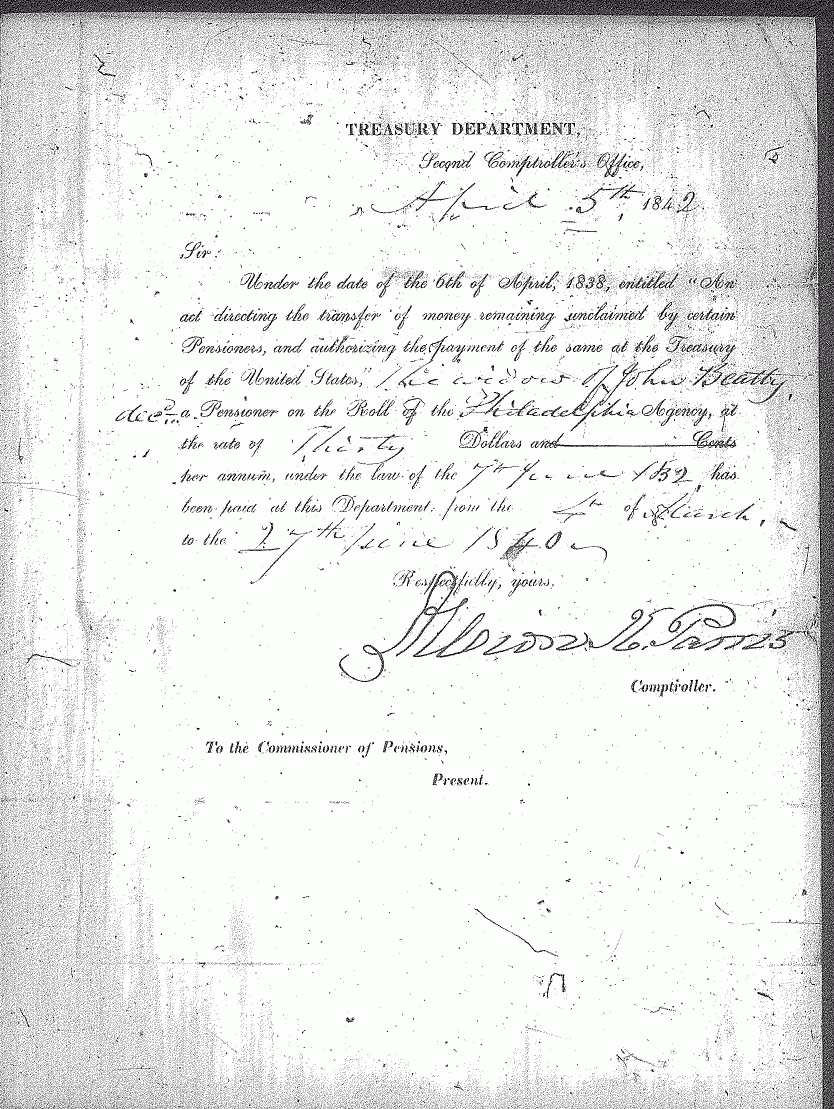 TREASURY DEPARTMENT,
Second Comptroller's Office,
April 5th, 1842
Sir:
Under the date of the 6th of April, 1838, entitled "An
act directing the transfer of money remaining unclaimed by certain
Pensioners, and authorizing the payment of the same at the Treasury
of the United States," The widow of John Beatty,
decd a Pensioner on the Roll of the Philadelphia Agency, at
the rate of Thirty Dollars and Cents
per annum, under the law of the 7th June 1832 has
been paid at this Department, from the 4th of March,
to the 27th June 1840
Respectfully, yours,
Albion K. Parris
Comptroller.
To the Commissioner of Pensions,
Present.